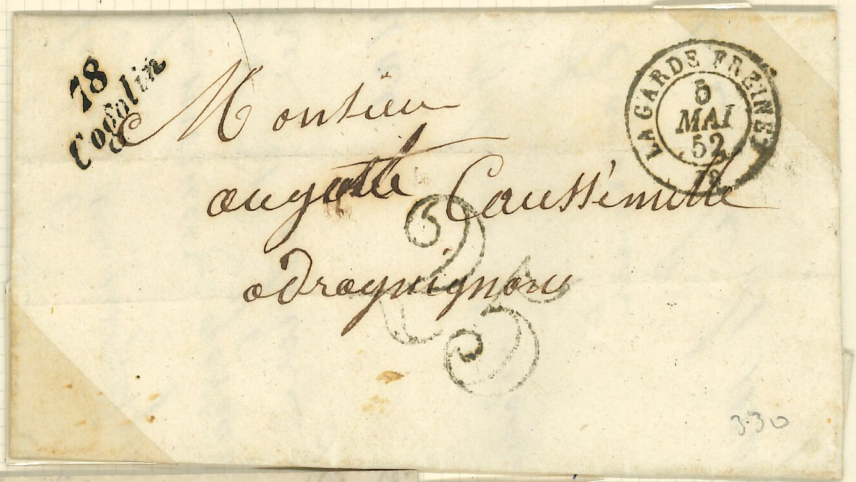 78
Cogolin
LA GARDE FREINET
5
MAI
52
78
Monsieur
auguste Caussémille
a draguignan
25
3-30